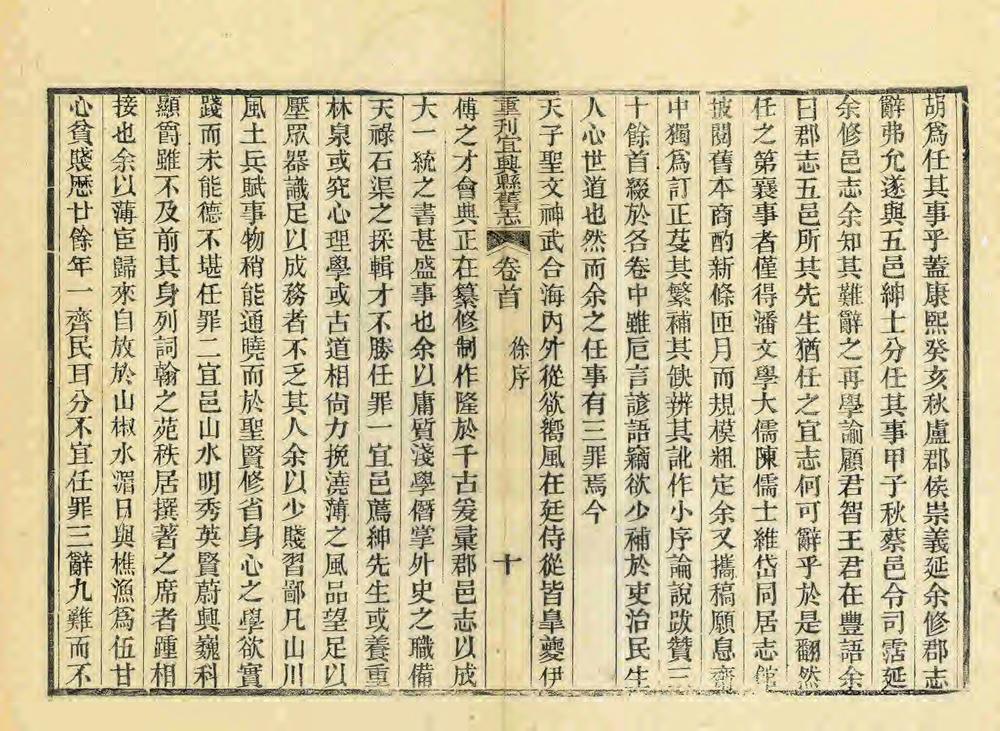 胡爲任其事乎蓋康熙癸亥秋盧郡侯崇義延余修郡志
辭弗允遂與五邑紳士分任其事甲子秋蔡邑令司霑延
余修邑志余知其難辭之再學諭顧君智王君在豐語余
曰郡志五邑所共先生猶任之宜志何可辭乎於是翻然
任之第襄事者僅得潘文學大儒陳儒士維岱同居志館
披閱舊本商酌新條匝月而規模粗定余又攜稿願息齋
中獨爲訂正芟其繁補其缺辨其訛作小序論說跋贊三
十餘首綴於各卷中雖卮言諺語竊欲少補於吏治民生
人心世道也然而余之任事有三罪焉今
天子聖文神武合海內外從欲嚮風在廷侍從皆臯夔伊
重刊宜興縣舊志 卷首 徐序 十
傅之才會典正在纂修制作隆於千古爰彙郡邑志以成
大一統之書甚盛事也余以庸質淺學僭掌外史之職備
天祿石渠之採輯才不勝任罪一宜邑薦紳先生或養重
林泉或究心理學或古道相尙力挽澆薄之風品望足以
壓眾器識足以成務者不乏其人余以少賤習鄙凡山川
風土兵賦事物稍能通曉而於聖賢修省身心之學欲實
踐而未能德不堪任罪二宜邑山水明秀英賢蔚興巍科
顯爵雖不及前其身列詞翰之苑秩居撰著之席者踵相
接也余以薄宦歸來自放於山椒水湄日與樵漁爲伍甘
心貧賤歷廿餘年一齊民耳分不宜任罪三辭九難而不